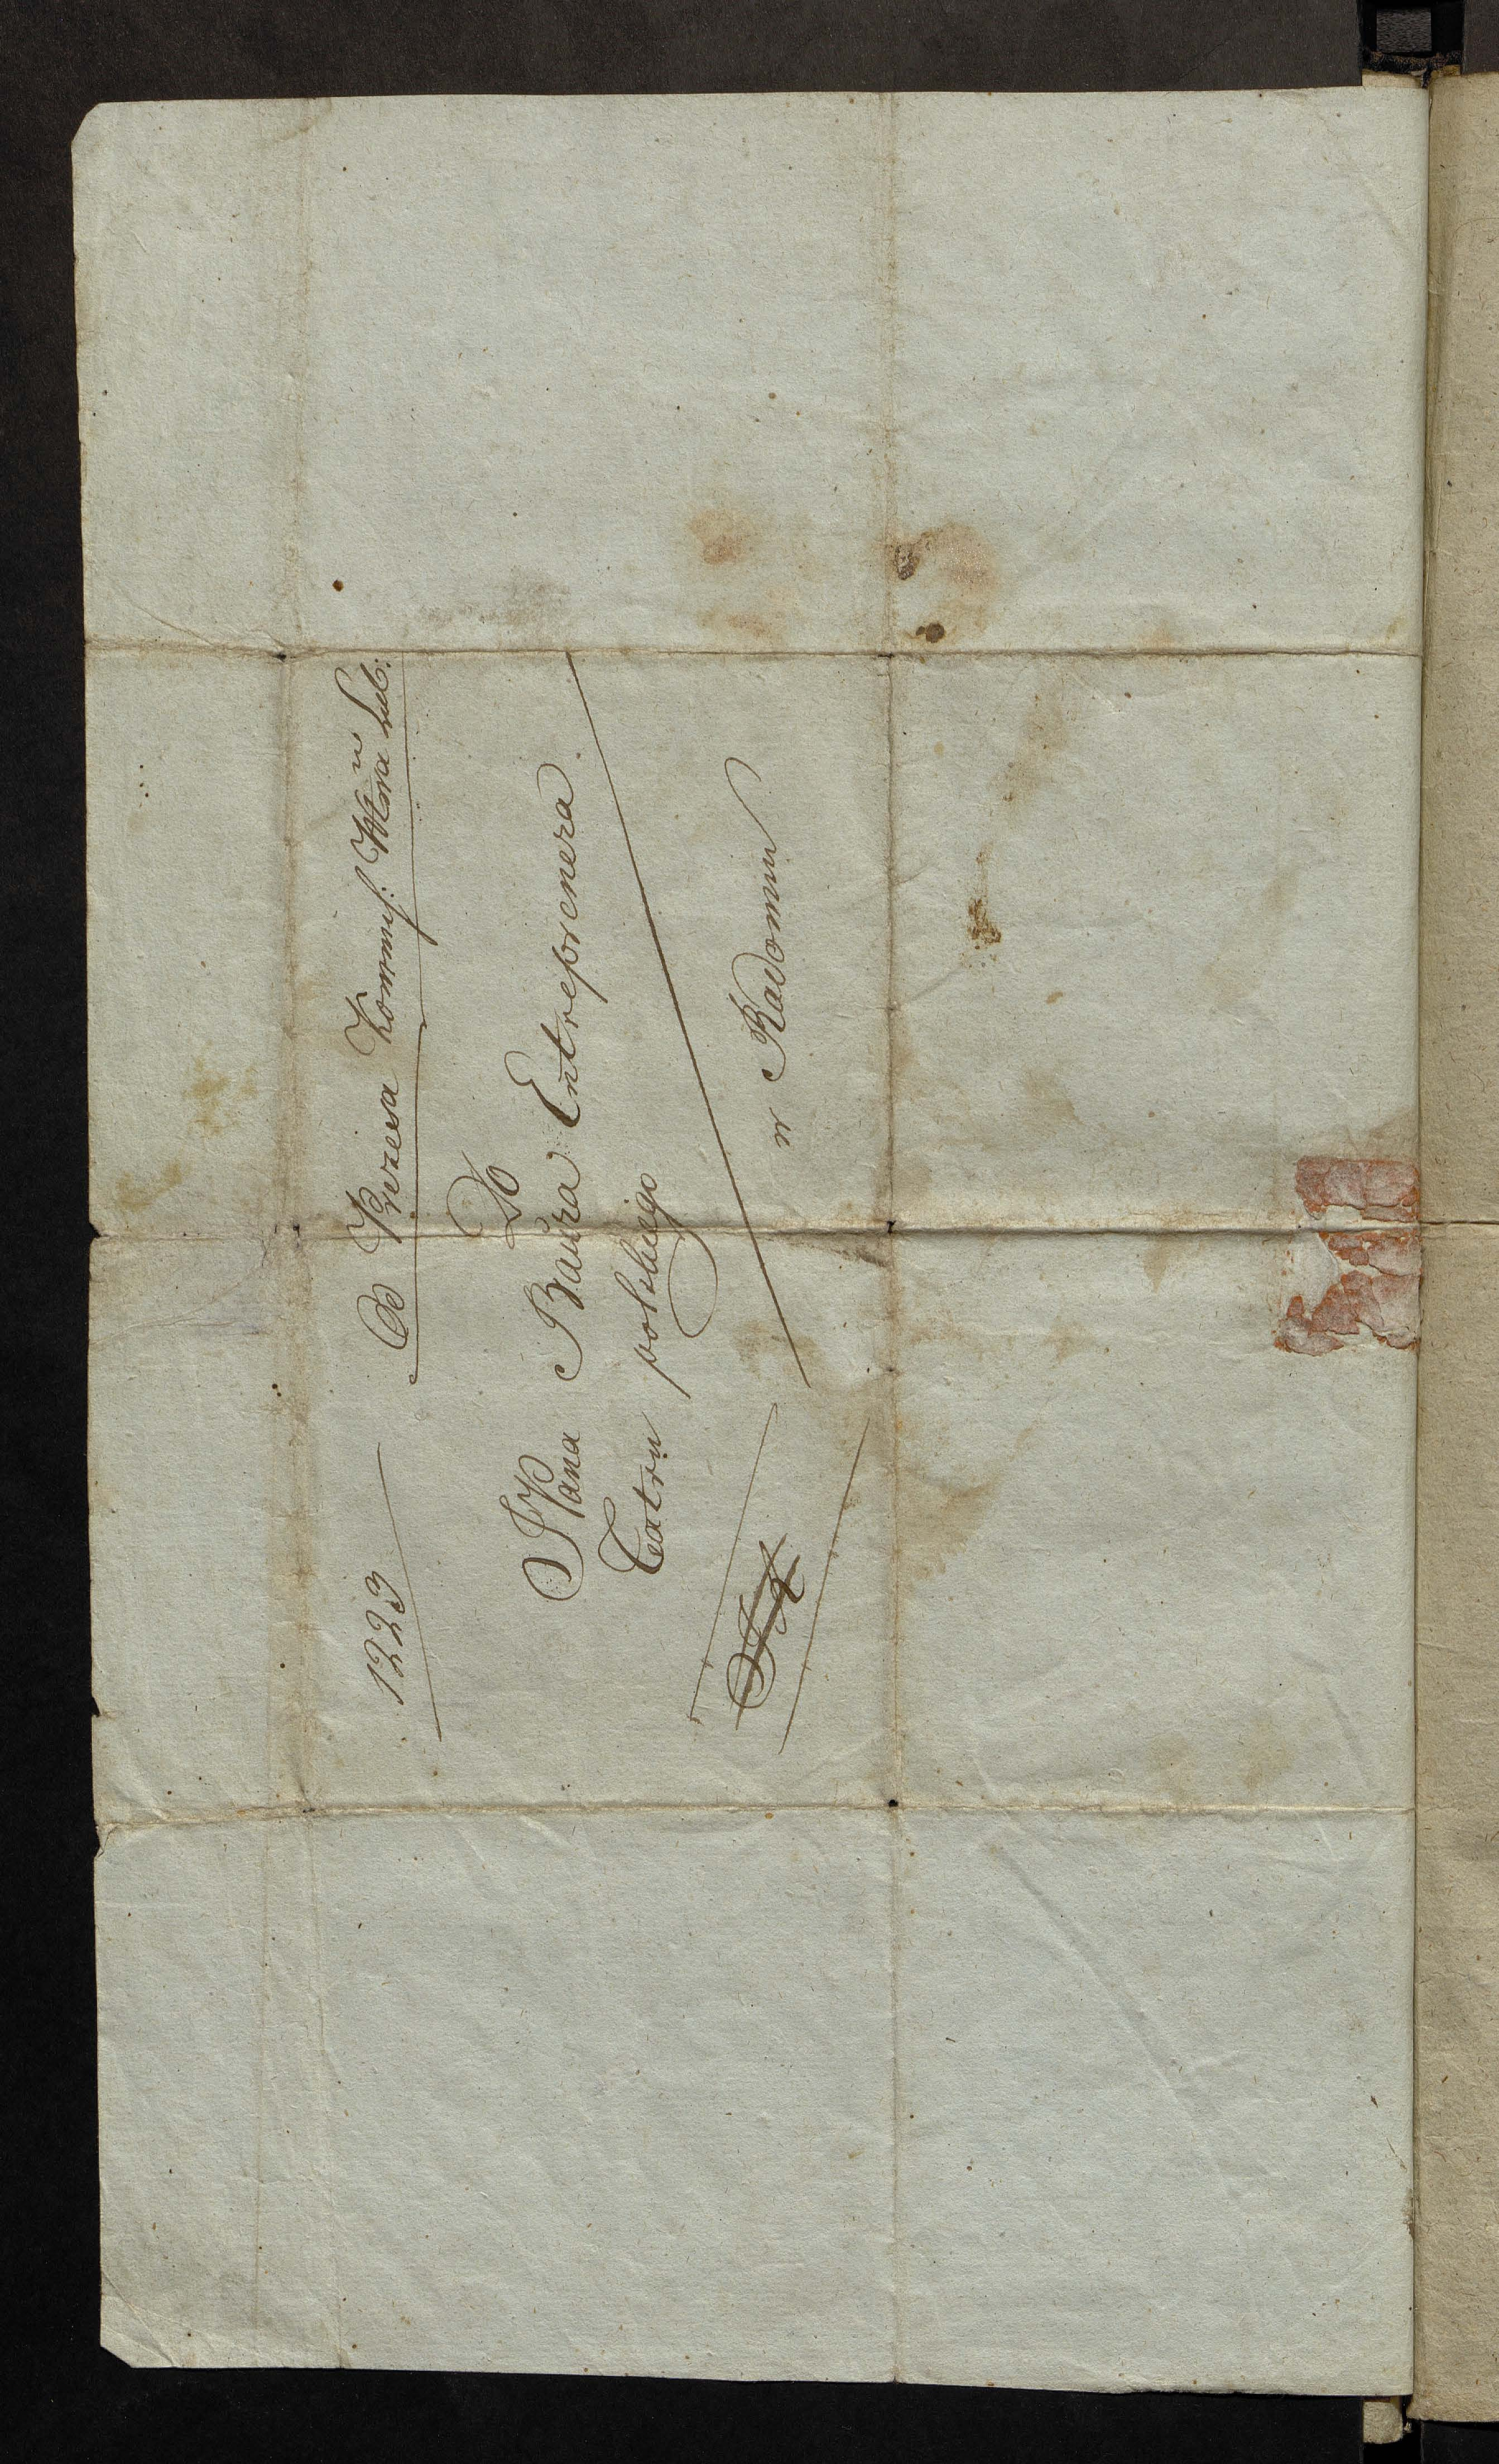 1223
Od Prezesa Kommiſ: Wtwa Lub:
Do
JPana Baura Entreprenera
Teatru polskiego
w Radomiu